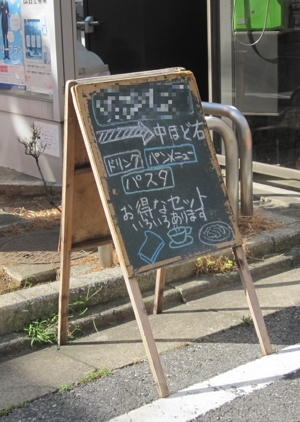 中ほど右
ドリンク パンメニュー
パスタ
お得なセット
いろいろあります